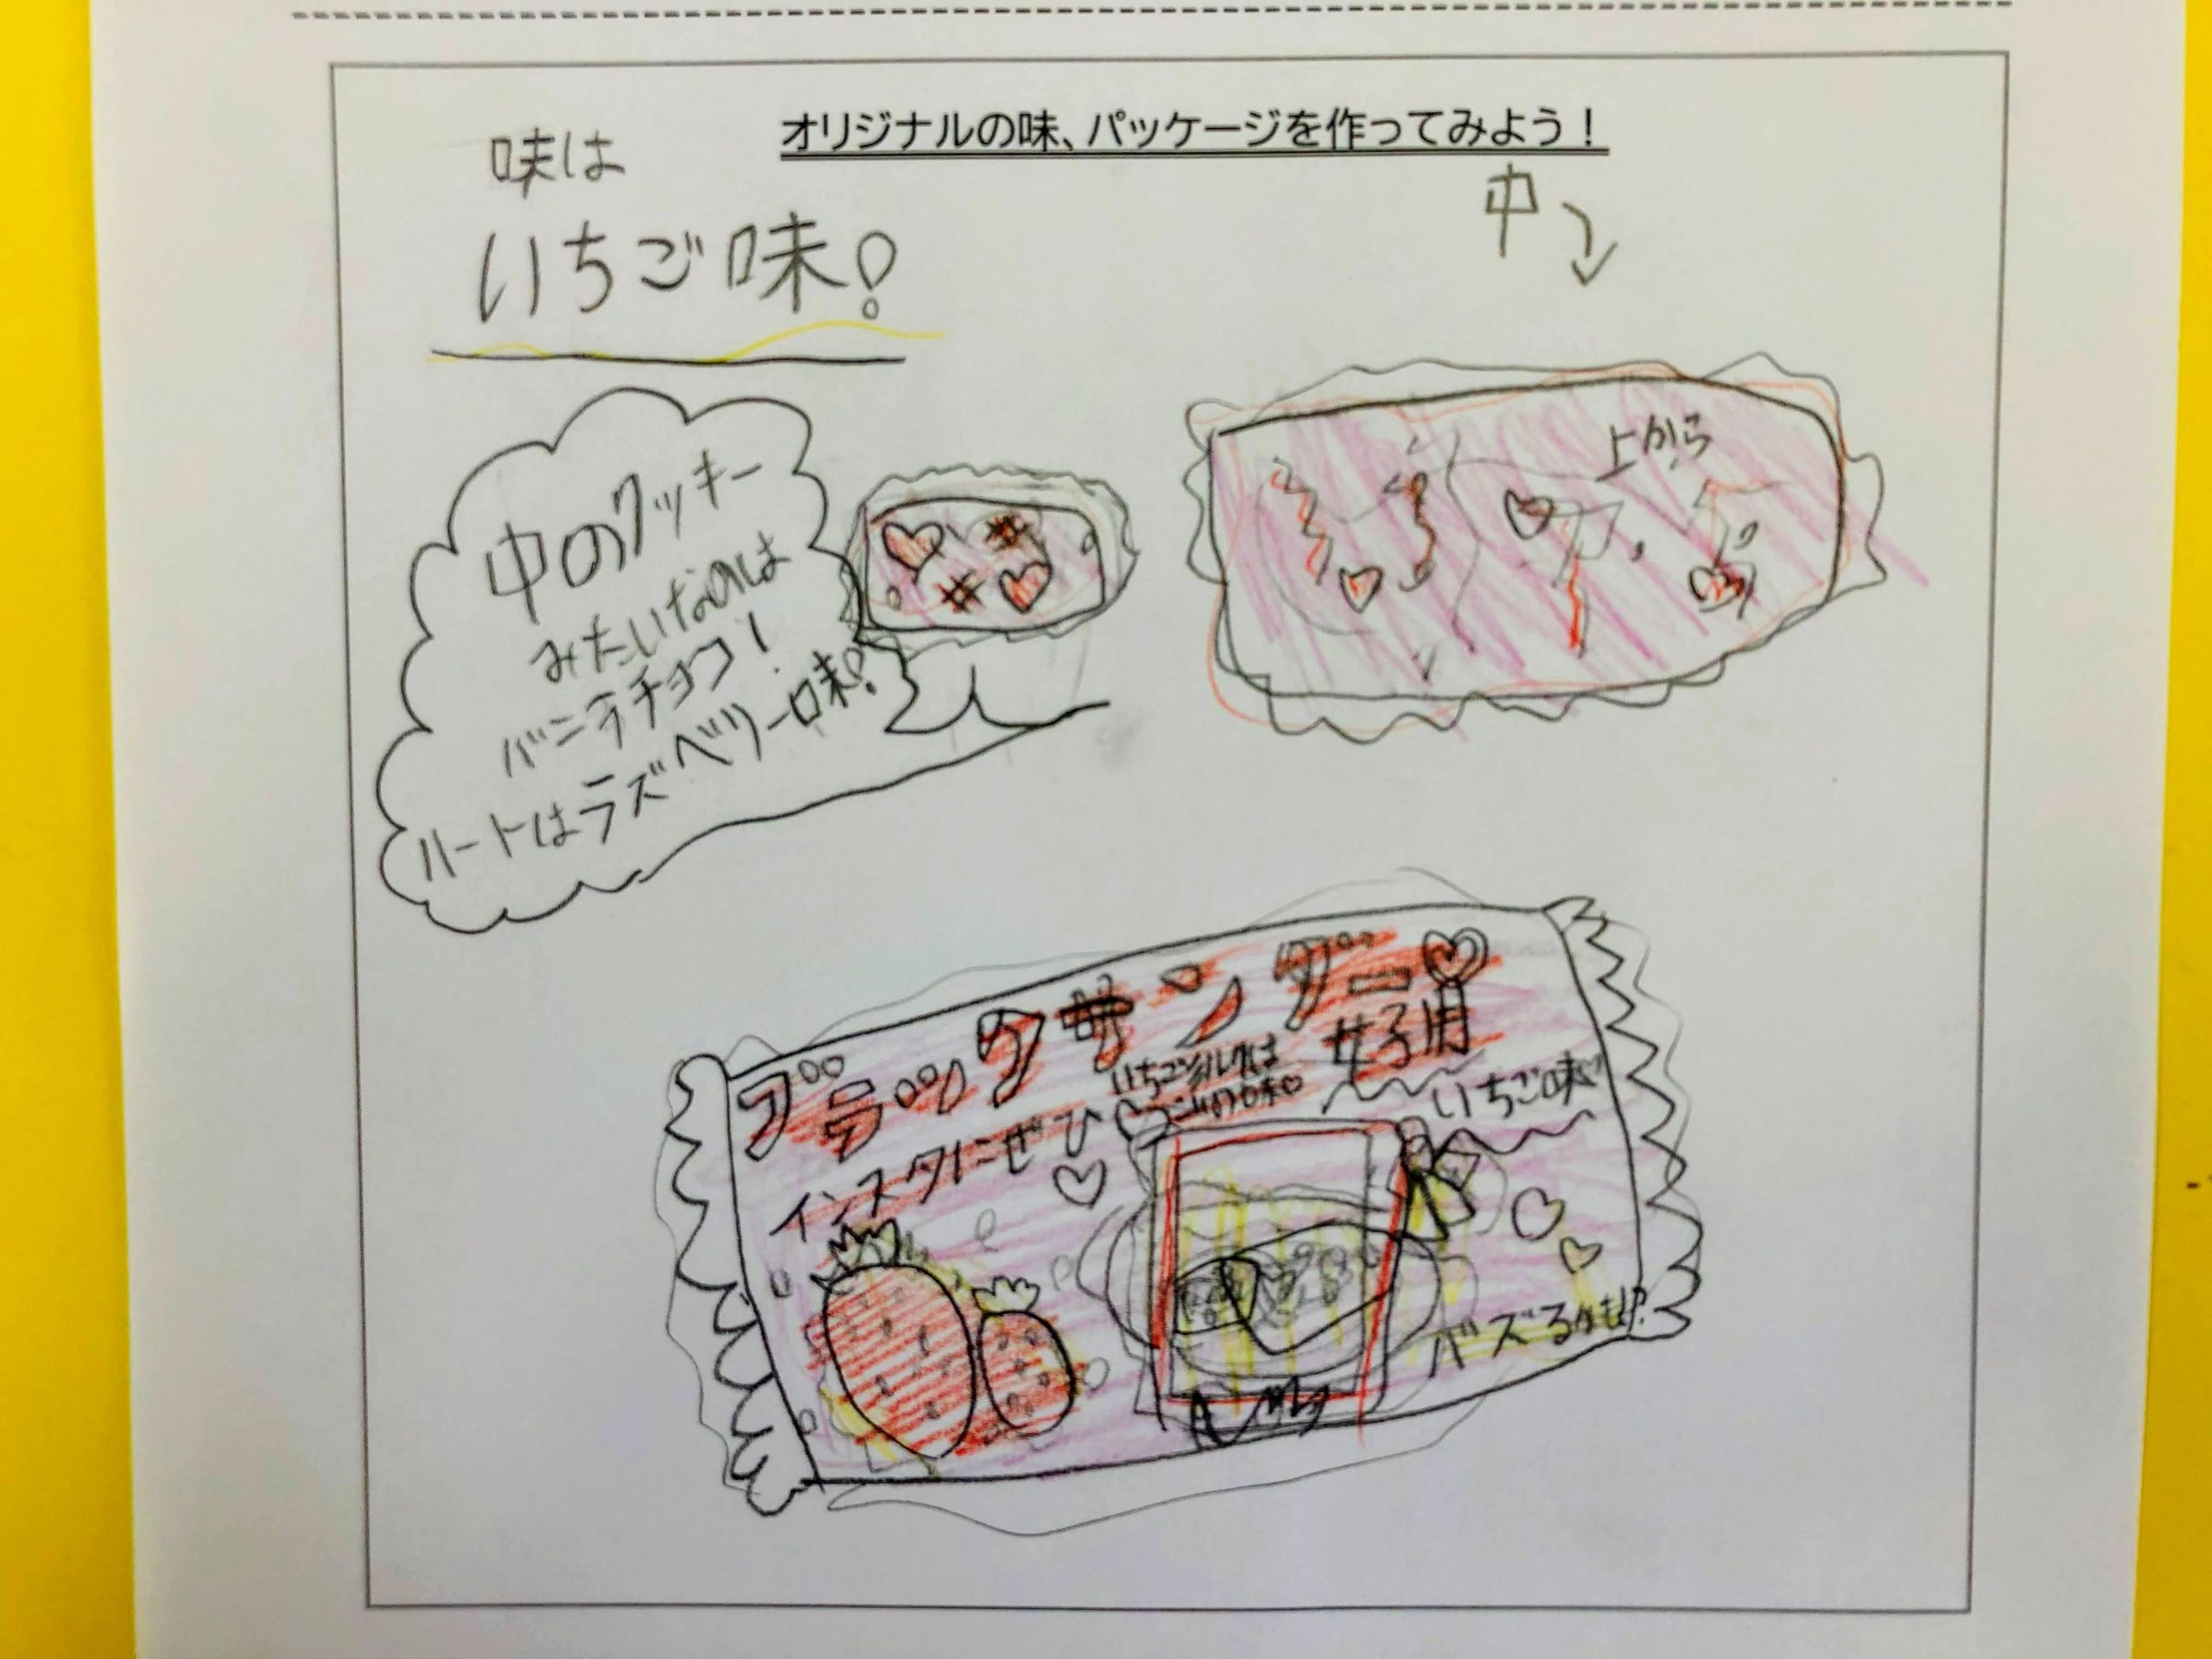 オリジナルの味、パッケージを作ってみよう！
味は
いちご味！
中
中のクッキー
みたいなのは
バニラチョコ！
ハートはラズベリー味！
上から
ブラックサンダー
女子用
いちご味
インスタにぜひ
バズるかも!?